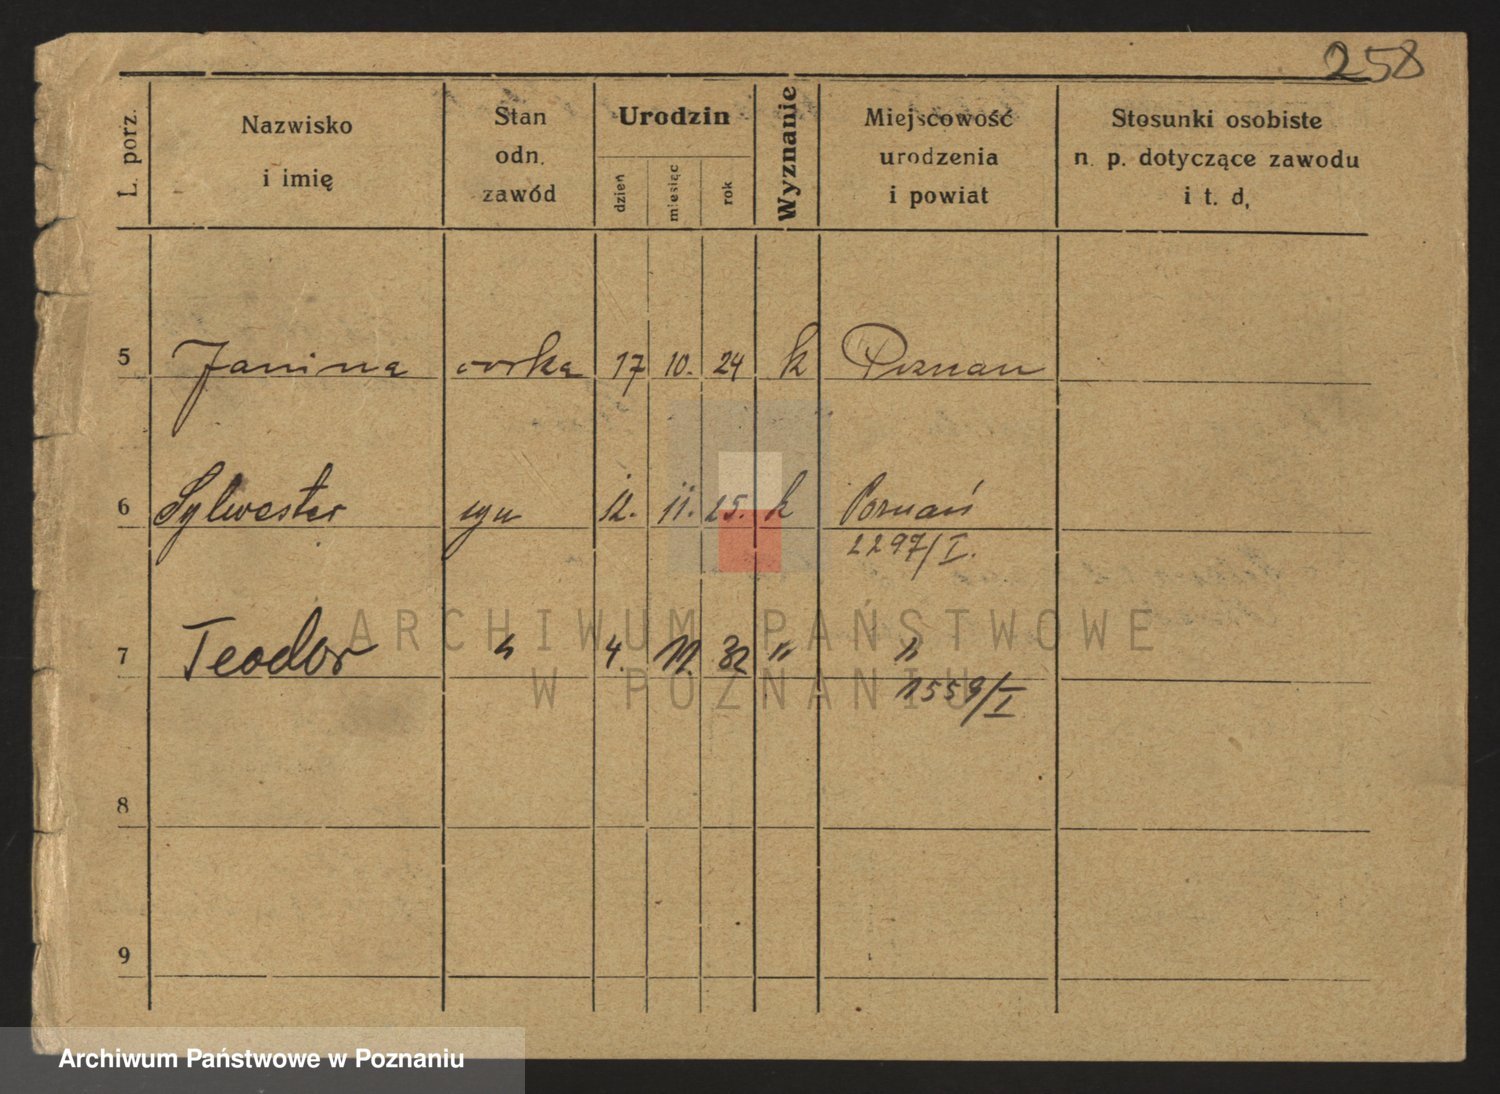 258
L. porz.
Nazwisko
i imię
Stan
odn.
zawód
Urodzin
dzień
miesiąc
rok
Wyznanie
Miejscowość
urodzenia
i powiat
Stosunki osobiste
n. p. dotyczące zawodu
i t. d.
5 Janina córka 17 10. 24 k Poznań
6 Sylwester syn 12. 11. 25. k Poznań
2297/I.
7 Teodor " 4. 11. 32 " "
1559/I
8
9
ARCHIWUM PAŃSTWOWE
W POZNANIU
Archiwum Państwowe w Poznaniu